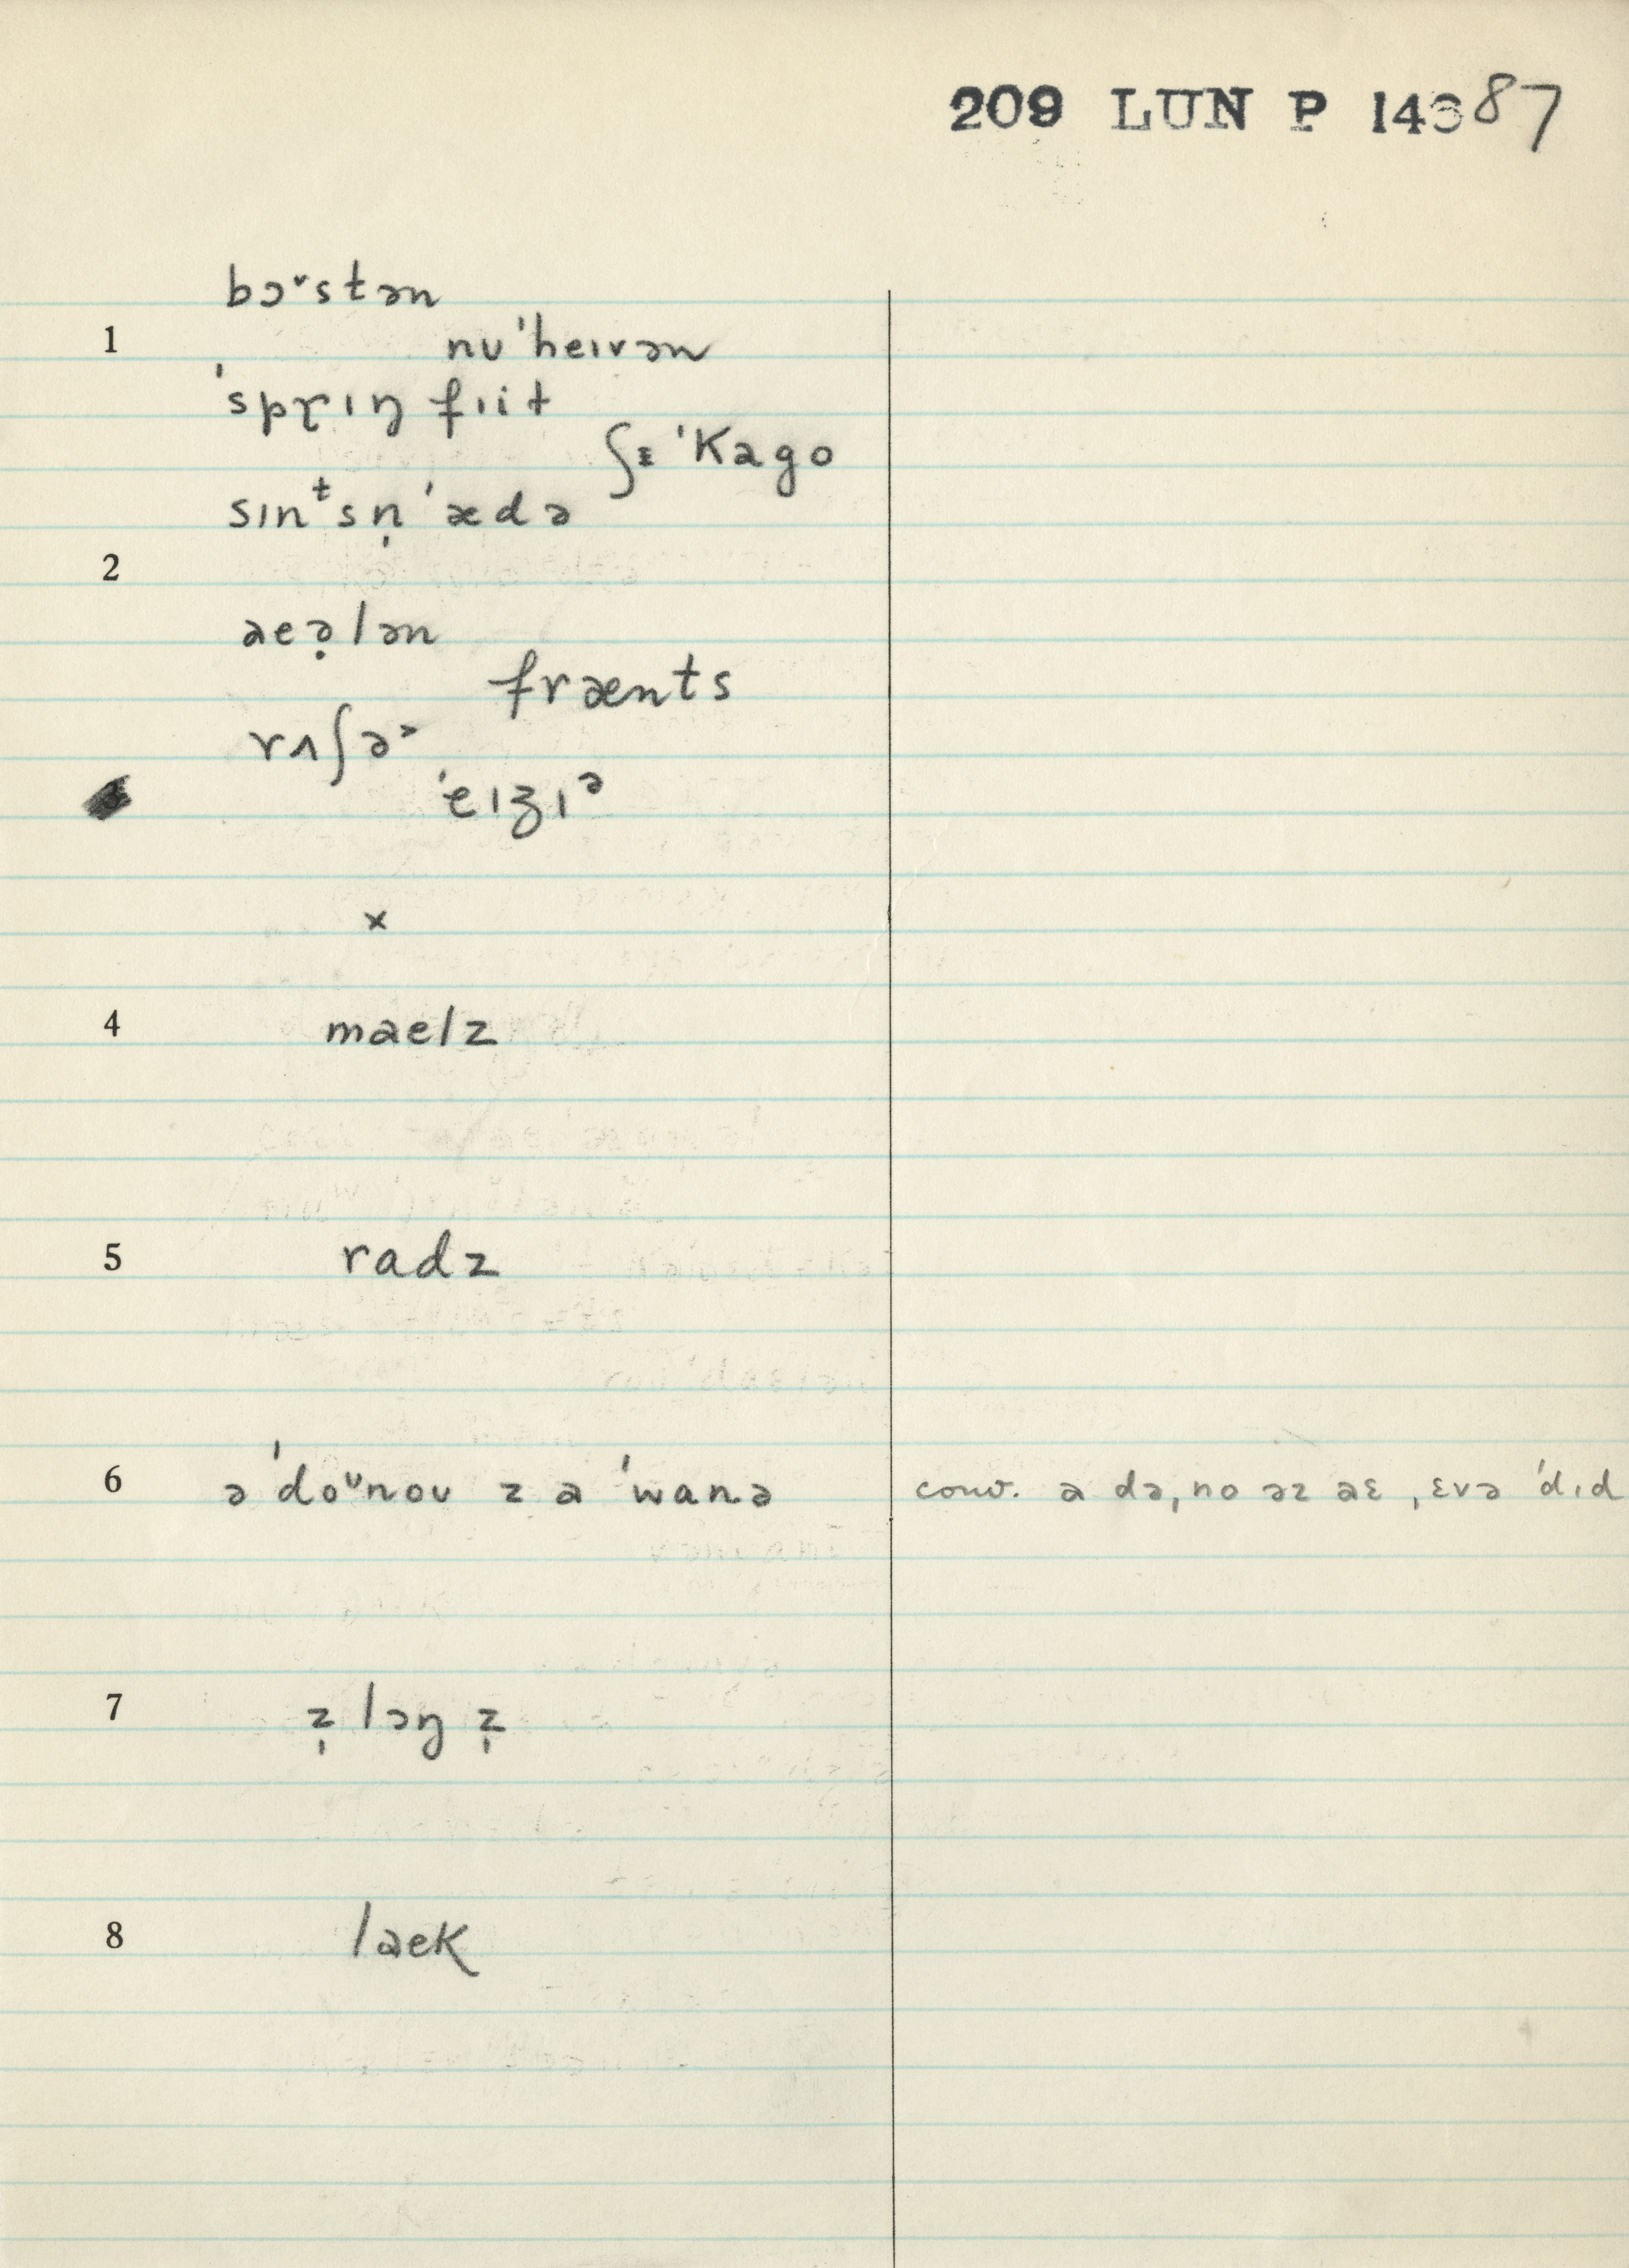 209 LUN P 14387
bɔᵛstən
1 nʊˈheɪvən
ˈsprɪŋ fɪit
ʃɪ ˈkago
sɪnᵗsn̩ ˈædə
2
aeə̣lən
frænts
rʌʃəʾ
ˈeɪʒɪᵊ
×
4 maelz
5 radz
6 ə ˈdoᵘnoʊ z a ˈwanə conv. a də, no əz aɛ ˌɛvə ˈdɪd
7 z̩ lɔŋ z̩
8 laek